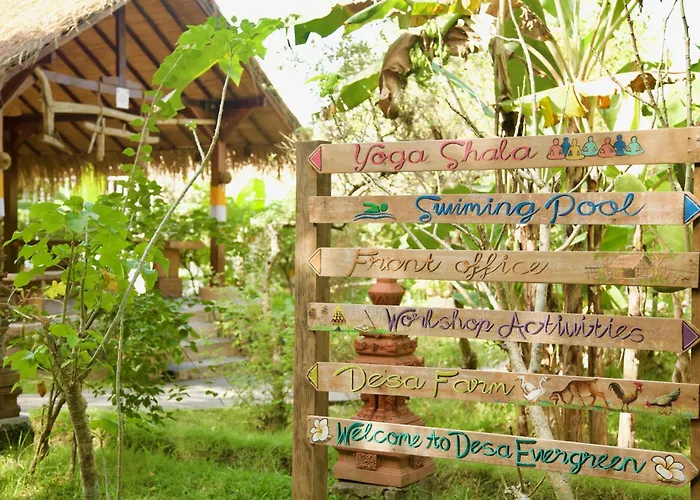 Yoga Shala
Swiming Pool
Front office
Workshop Activities
Desa Farm
Welcome to Desa Evergreen